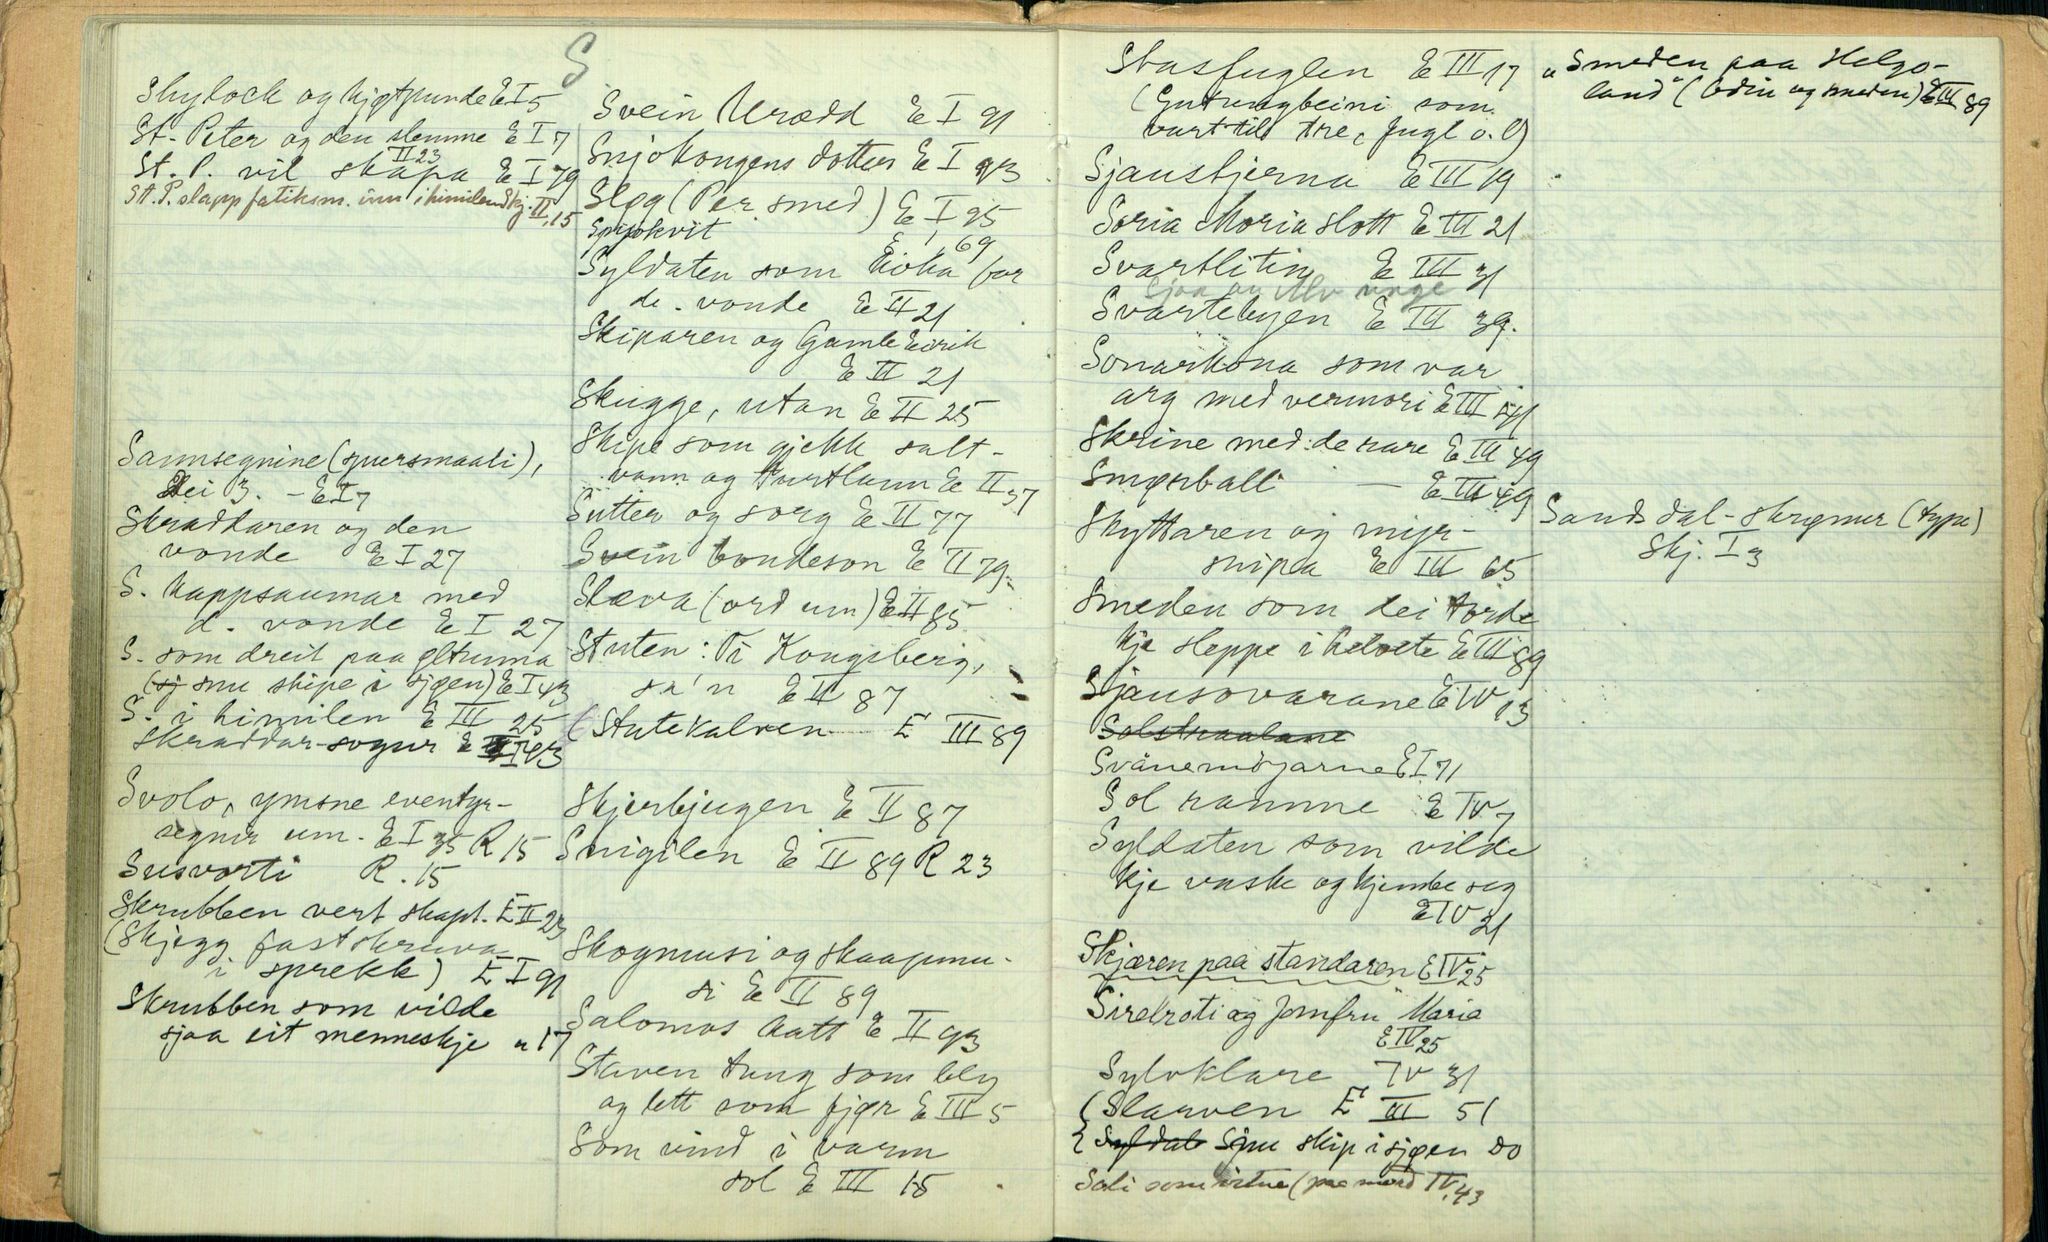 S
Shylock og kjøtpunde E I 5
St. Peter og den slemme E I 7
II 23
St. P. vil skapa E I 79
St. P. slapp fatiksm. inn i himilen Skj. II, 15
Samsegnine (spursmaali),
dei 3. - E I 7
Skraddaren og den
vonde E I 27
S. kappsaumar med
d. vonde E I 27
S. som dreit paa
snu skipe i sjøen) E I 43
S. i himilen E III 25
Skraddar-sogur E
Svolo, ymsne eventyr-
segnir um - E I 35 R 15
Susvorti R. 15
Skrubben vert skapt. E II 23
(Skjegg fastskruva
i sprekk) E I 91
Skrubben som vilde
sjaa eit menneskje " 17
Svein Urædd E I 91
Snjokongens dotter E I 93
Sløg (Per smed) E I 95
Snjokvit E I 69
Syldaten som bar
de. vonde E II 21
Skiparen og Gamle Eirik
E II 21
Skugge, utan E II 25
Skipe som gjekk salt-
vann og turtlann E II 37
Sutter og sorg E II 77
Svein bondeson E II 79
Slæva (ord um) E II 85
Stuten: Ti Kongsberg,
sa'n E II 87
(Stutekalven E III 89
Skjerbjugen E II 87
Snigilen E II 89 R 23
Skogmusi og skaapmu-
si E II 89
Salomos katt E II 93
Staven tung som bly
og lett som fjør E III 5
Som vind i varm
sol E III 15
Stasfuglen E III 17
som
vart til tre, fugl o.l)
Sjaustjerna E III 19
Soria Moria slott E III 21
Svartlitin E III 31
Sjaa og unge
Svartebyen E III 39.
Sonarkona som var
arg med vermori E III 41
Skrine med: de rare E III 49
Smørballi — E III 49
Skyttaren og myr-
snipa E III 65
Smeden som dei torde
kje sleppe i helvete E III 89
Sjausovarane E IV 13
Solstraalane
Svanemøyarne E I 71
Sol ramme E IV 7
Syldaten som vilde
kje vaske og kjembe seg
E IV 21
Skjæren paa standaren E IV 25
Sirelroti og Jomfru Maria
E IV 25
Sylvklare IV 31
(Slarven E III 51
Syldat Snu skip i sjøen do
Soli som vitne (paa mord IV, 43
"Smeden paa Helgo-
land" (Odin og smeden) E III 89
Sandsdal-skrømur (type)
Skj. I 3